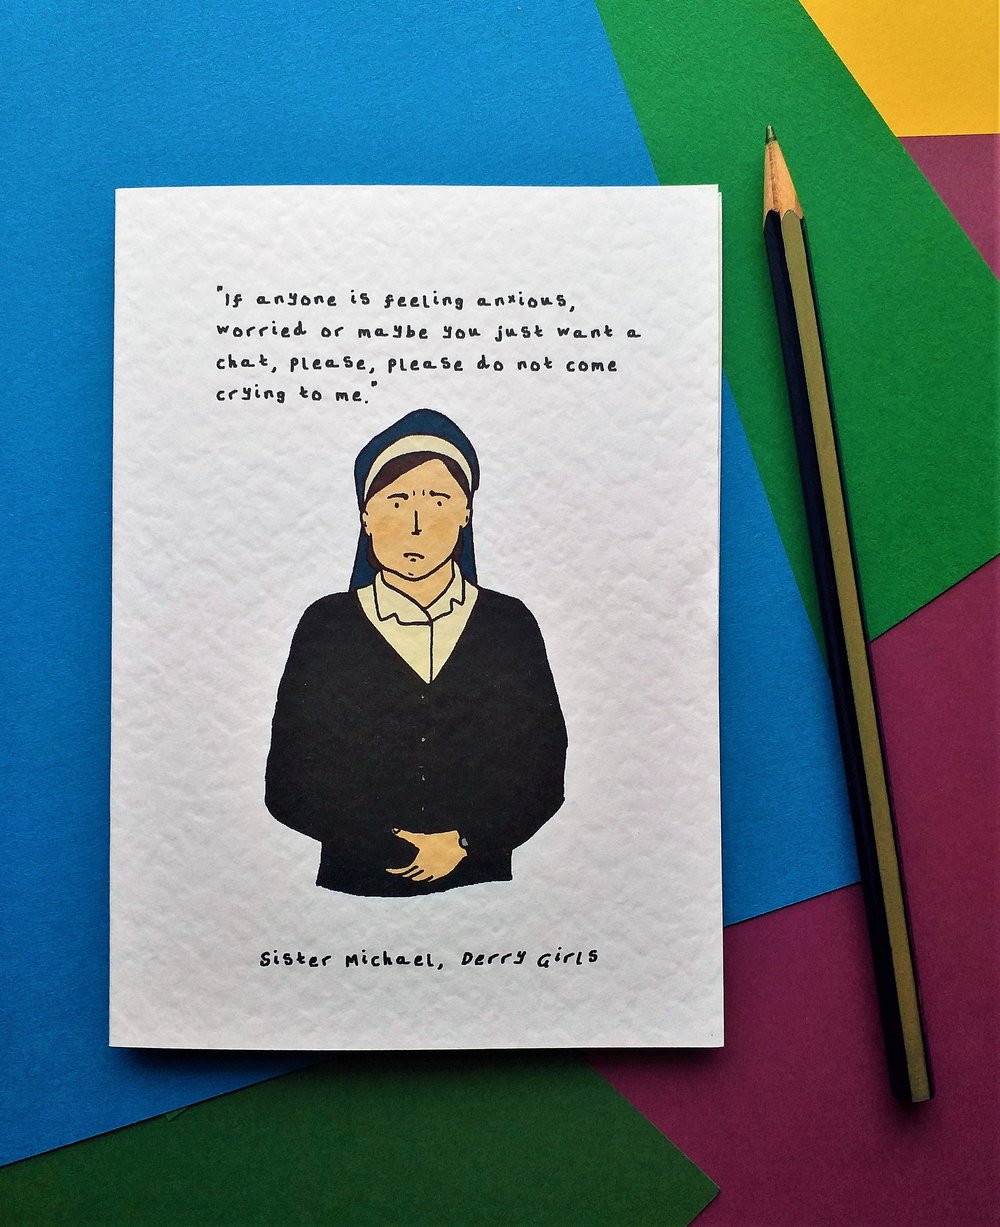 "If anyone is feeling anxious,
worried or maybe you just want a
chat, please, please do not come
crying to me."
Sister Michael, Derry Girls